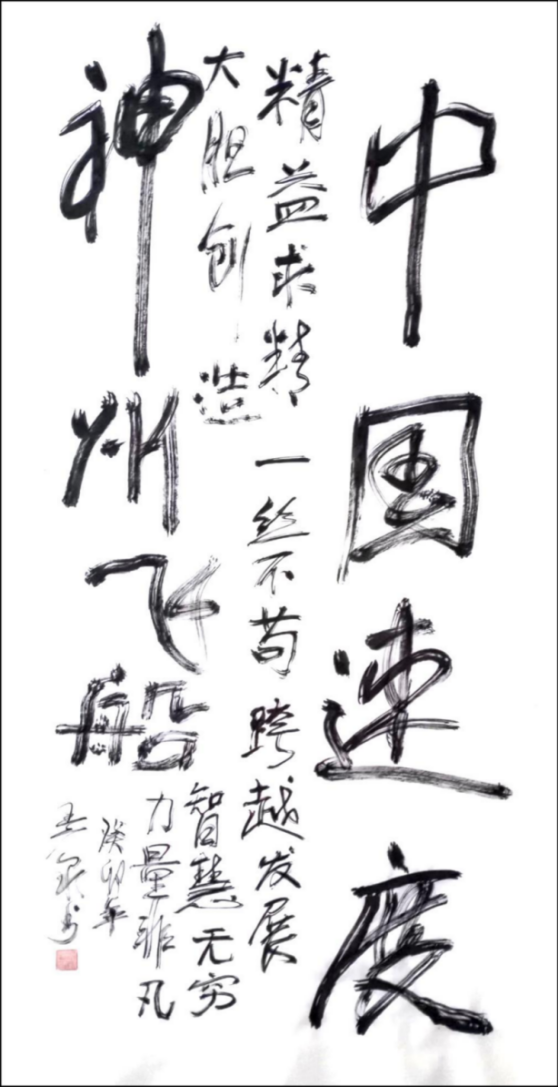 中国速度
精益求精 一丝不苟 跨越发展
大胆创造
智慧无穷
神州飞船
力量非凡
癸卯年
书